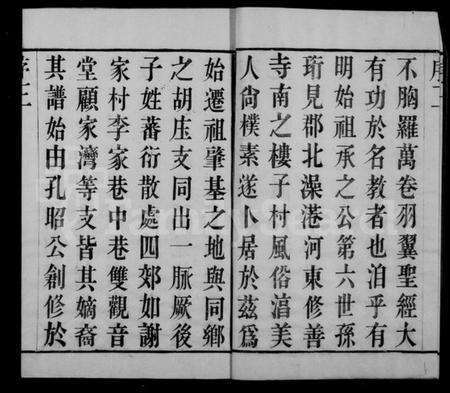 不胸羅萬卷羽翼聖經大
有功於名教者也洎乎有
明始祖承之公第六世孫
珩見郡北澡港河東修善
寺南之樓子村風俗湻美
人尙樸素遂卜居於茲爲
始遷祖肇基之地與同鄉
之胡庒支同出一脈厥後
子姓蕃衍散處四郊如謝
家村李家巷中巷雙觀音
堂顧家灣等支皆其嫡裔
其譜始由孔昭公創修於